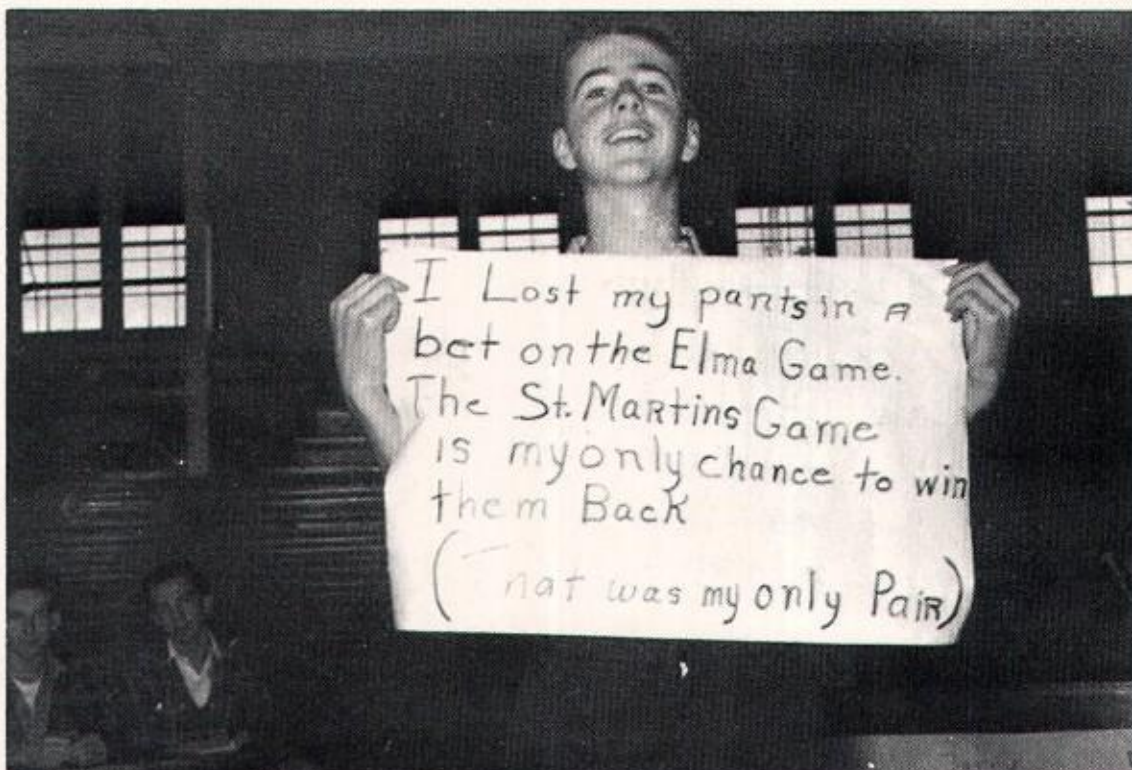 I Lost my pants in A
bet on the Elma Game.
The St. MaRtins Game
is my only chance to win
them Back
(That was my only PaiR)